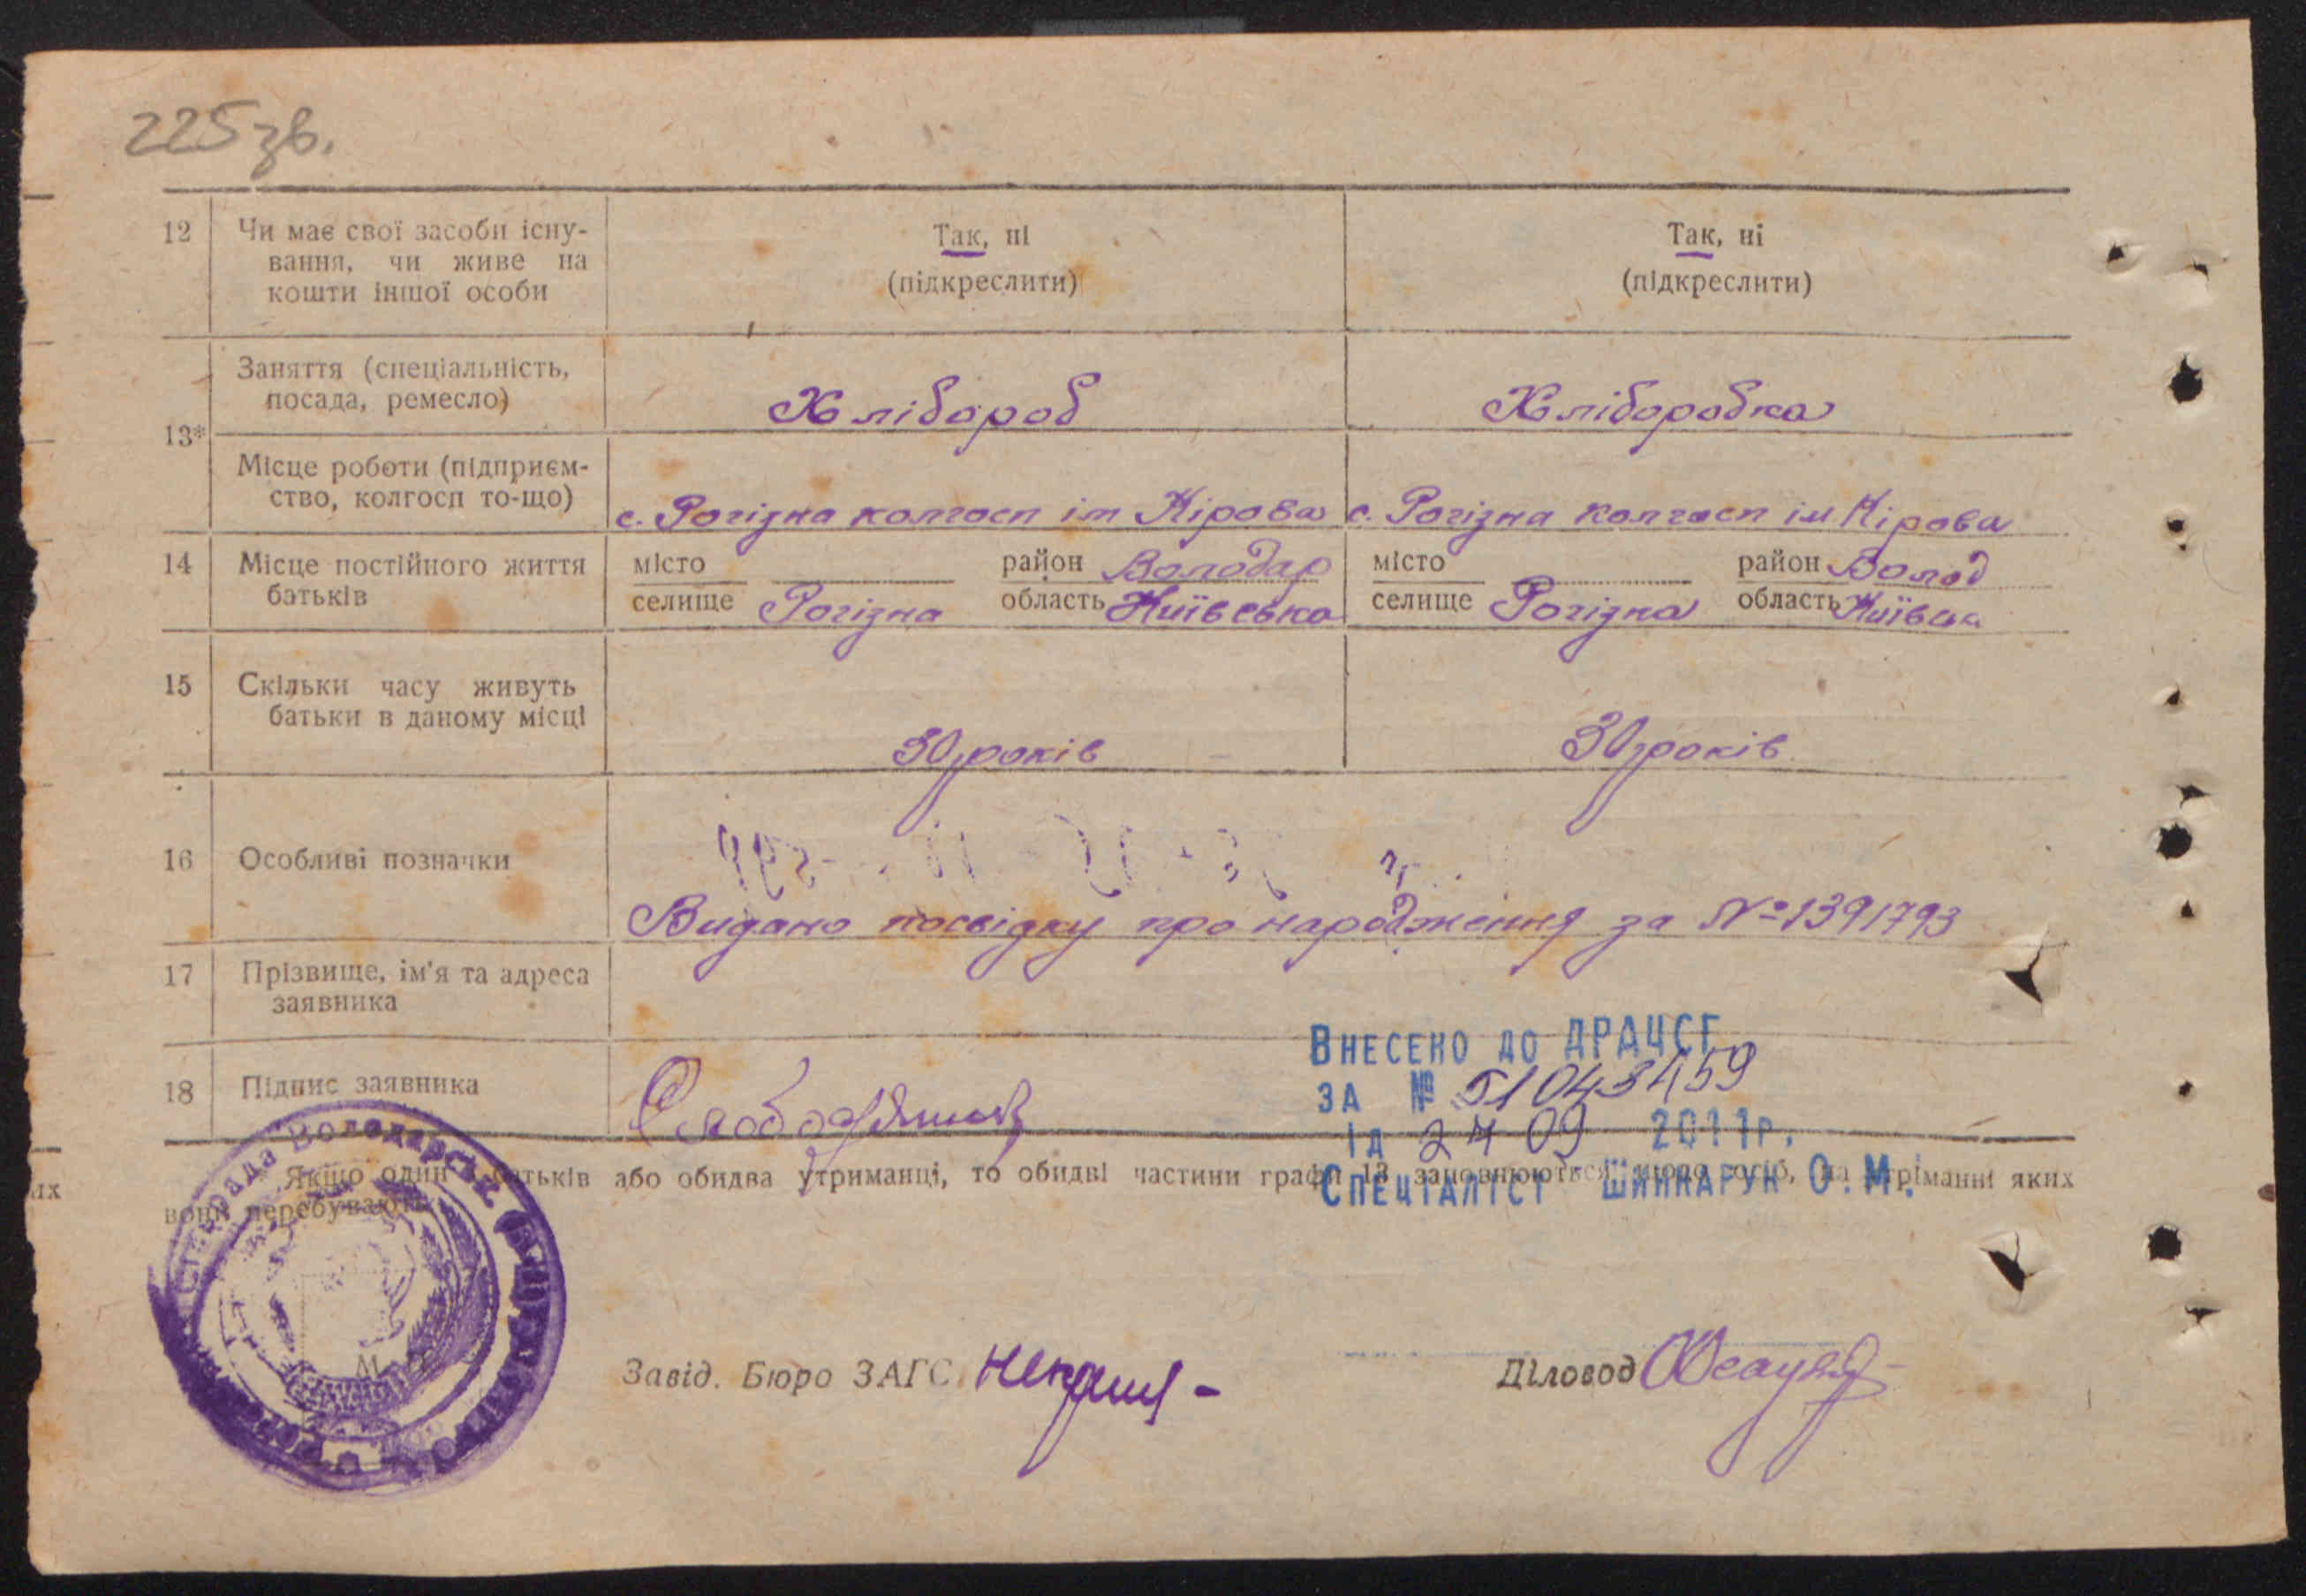 225 зв.
12 Чи має свої засоби існу- Так, ні Так, ні
вання, чи живе на (підкреслити) (підкреслити)
кошти іншої особи
Заняття (спеціальність, Хлібороб Хліборобка
посада, ремесло)
13*
Місце роботи (підприєм- с. Рогізна колгосп ім Кірова с. Рогізна колгосп ім Кірова
ство, колгосп то-що)
14 Місце постійного життя місто район Володар місто район Волод
батьків селище Рогізна область Київська селище Рогізна область
15 Скільки часу живуть 30 років 30 років
батьки в даному місці
16 Особливі позначки
Видано посвідку про народження за № 1391793
17 Прізвище, ім'я та адреса
заявника
Внесено до ДРАЦСГ
18 Підпис заявника
за № 51043459
ід 24 09 2011р.
Якщо один батьків або обидва утриманці, то обидві частини графи 13 заповнюються щодо осіб, на утріманні яких
вони перебувають
Спеціаліст Шинкарук О.М.
их
Володарсь
М
Завід. Бюро ЗАГС Діловод